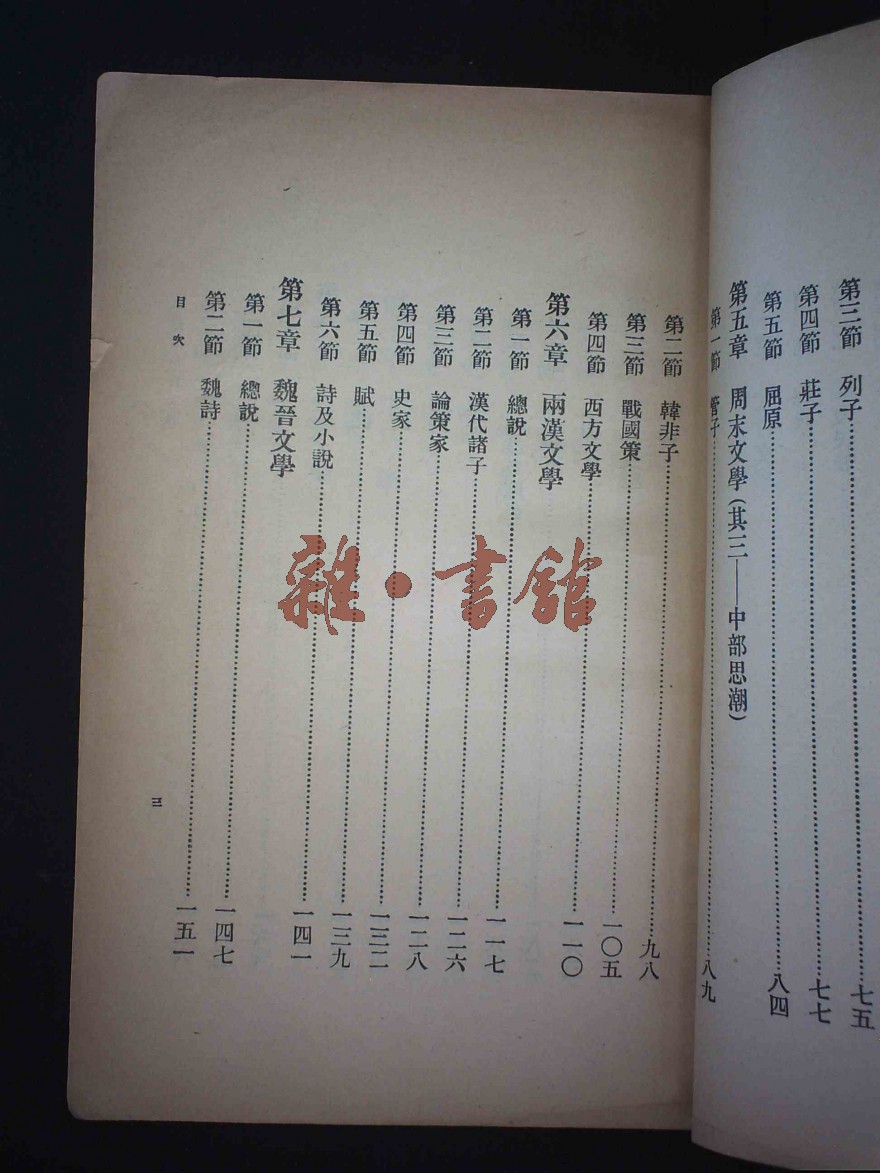 第三節　列子……七五
第四節　莊子……七七
第五節　屈原……八四
第五章　周末文學(其三——中部思潮)
第一節　管子……八九
第二節　韓非子……九八
第三節　戰國策……一〇五
第四節　西方文學……一一〇
第六章　兩漢文學
第一節　總說……一一七
第二節　漢代諸子……一二六
第三節　論策家……一二八
第四節　史家……一三二
第五節　賦……一三九
第六節　詩及小說……一四一
第七章　魏晉文學
第一節　總說……一四七
第二節　魏詩……一五一
目次
三
雜·書館